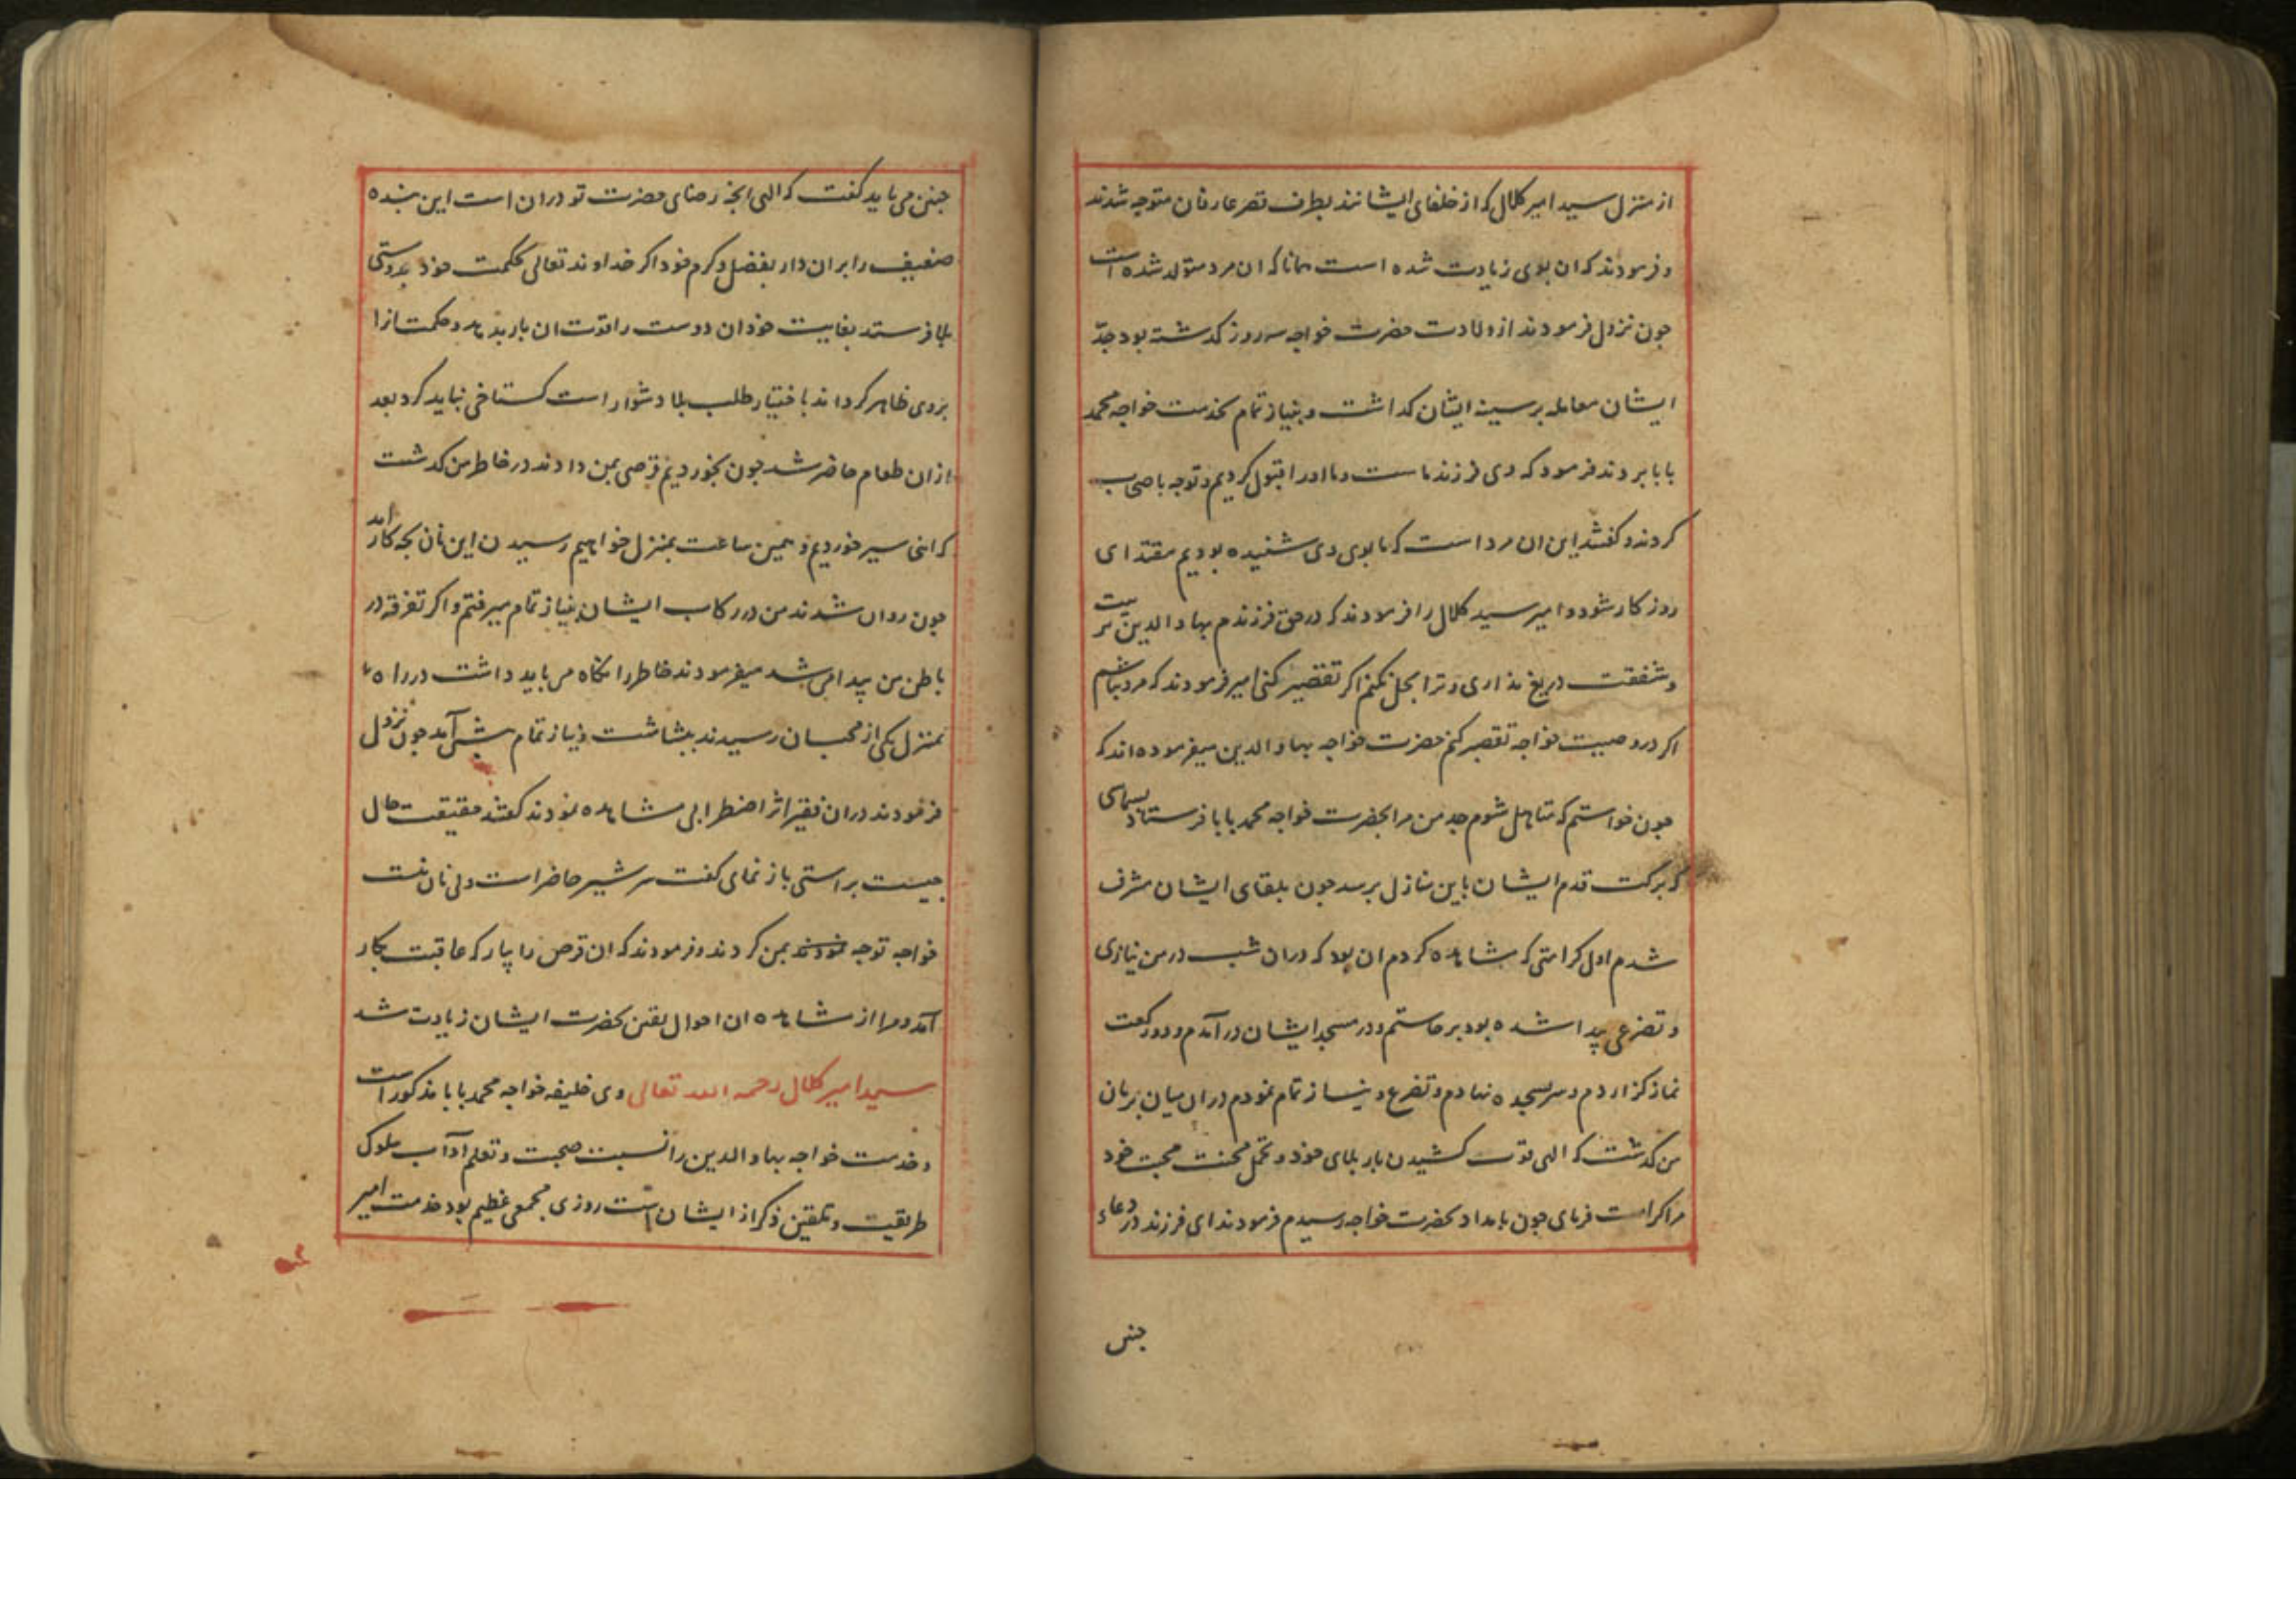 از منزل سید امیر کلال که از خلفای ایشانند بطرف قصر عارفان متوجه شدند
و فرمودند که ان بوی زیادت شده است همانا که ان مرد متولد شده است
جون نزول فرمودند از ولادت حضرت خواجه سه روز کدشته بود جدّ
ایشان معامله بر سینه ایشان کداشت و بنیاز تمام بخدمت خواجه محمد
بابا بردند فرمود که وی فرزند ماست و ما او را قبول کردیم و توجه باصحاب
کردند و کفتند این ان مرد است که ما بوی وی شنیده بودیم مقتدای
روزکار شود و امیر سید کلال را فرمودند که در حق فرزندم بهاو الدین تربیت
و شفقت دریغ نداری و ترا بحل نکنم اکر تقصیر کنی امیر فرمودند که مرد نباشم
اکر در وصیت خواجه تقصیر کنم حضرت خواجه بهاو الدین میفرموده اند که
جون خواستم که متاهل شوم جد من مرا بحضرت خواجه محمد بابا فرستاد بسماسی
که برکت قدم ایشان باین منازل برسد جون بلقای ایشان مشرف
شدم اول کرامتی که مشاهده کردم ان بود که دران شب در من نیازی
و تضرعی پیدا شده بود برخاستم و در مسجد ایشان در آمدم و دو رکعت
نماز کزاردم و سر بسجده نهادم و تضرع و نیاز تمام نمودم دران میان بر زبان
من کدشت که الهی قوت کشیدن بار بلای خود و تحمل محنت محبت خود
مرا کرامت فرمای جون بامداد بحضرت خواجه رسیدم فرمودند ای فرزند در دعاء
جنین
جنین می باید کفت که الهی انجه رضای حضرت تو دران است این بنده
ضعیف را بران دار بفضل و کرم خود اکر خداوند تعالی بحکمت خود بدوستی
بلا فرستد بعنایت خود ان دوست را قوت ان بار بدهد و حکمت انرا
بروی ظاهر کرداند باختیار طلب بلا دشوار است کستاخی نباید کرد بعد
از ان طعام حاضر شد جون بخوردیم قرصی بمن دادند در خاطر من کدشت
که اینجا سیر خوردیم و همین ساعت بمنزل خواهیم رسیدن این نان بجه کار آید
جون روان شدند من در رکاب ایشان بنیاز تمام میرفتم و اکر تفرقه در
باطن من پیدا می شد میفرمودند خاطر را نکاه می باید داشت در راه
بمنزل یکی از محبان رسیدند ببشاشت و نیاز تمام پیش آمد جون نزول
فرمودند دران فقیر اثر اضطرابی مشاهده نمودند کفتند حقیقت حال
جیست براستی باز نمای کفت سر شیر حاضر است ولی نان نیست
خواجه توجه بمن کردند و فرمودند که ان قرص را بیار که عاقبت بکار
آمد و مرا از مشاهده ان احوال یقین بحضرت ایشان زیادت شد
سید امیر کلال رحمه الله تعالی وی خلیفه خواجه محمد بابا مذکور است
و خدمت خواجه بهاو الدین را نسبت صحبت و تعلم آداب سلوک
طریقت و تلقین ذکر از ایشان است روزی مجمعی عظیم بود خدمت امیر